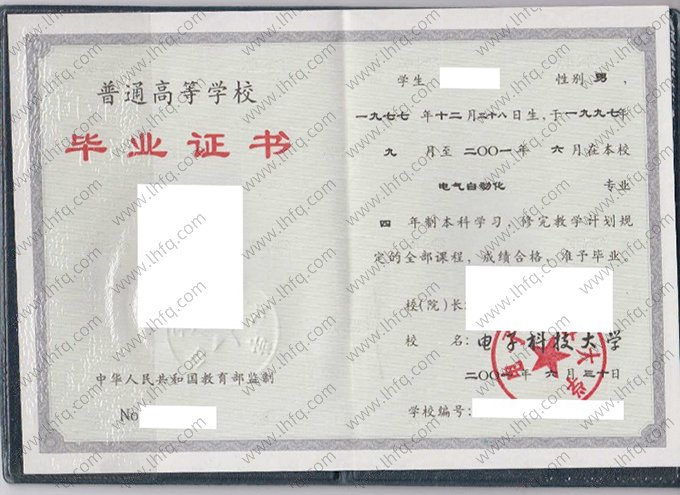 普通高等学校
毕业证书
中华人民共和国教育部监制
No
学生 性别 男，
一九七七 年十二月二十八日生，于一九九七年
九 月至二〇〇一年 六月在本校
电气自动化 专业
四 年制本科学习，修完教学计划规
定的全部课程，成绩合格，准予毕业。
校(院)长：
校 名：电子科技大学
二〇〇一年 六月三十日
学校编号：
www.lhfq.com